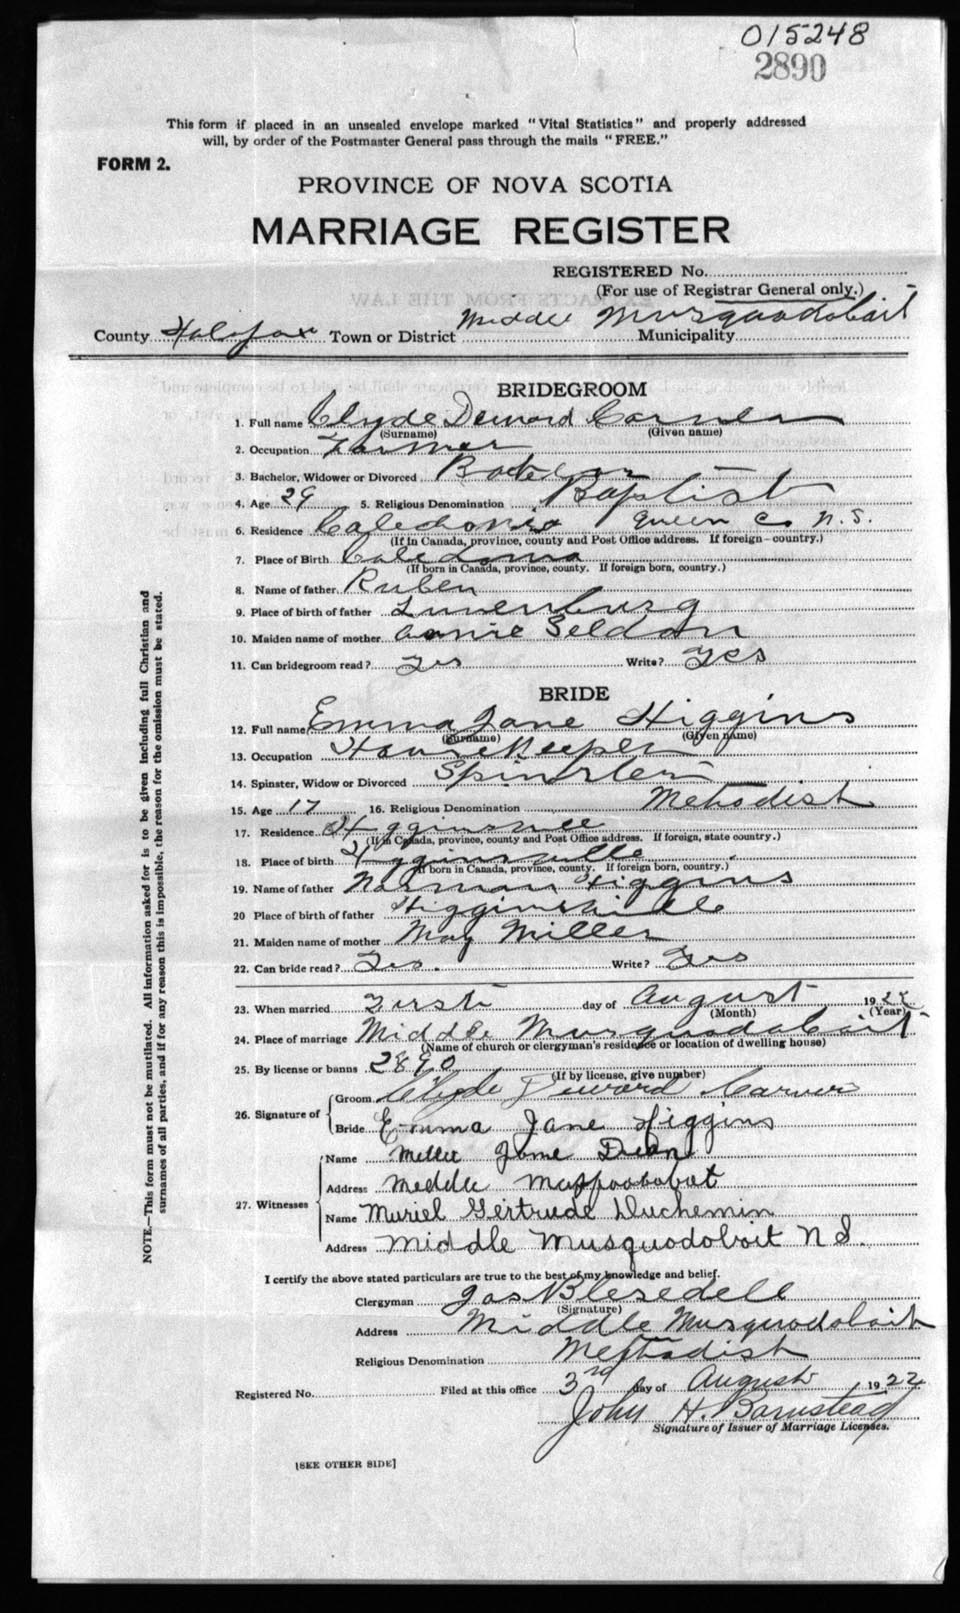 015248
2890
This form if placed in an unsealed envelope marked "Vital Statistics" and properly addressed
will, by order of the Postmaster General pass through the mails "FREE."
FORM 2.
PROVINCE OF NOVA SCOTIA
MARRIAGE REGISTER
REGISTERED No.
(For use of Registrar General only.)
County Halifax Town or District Middle Musquodoboit Municipality
BRIDEGROOM
1. Full name Clyde Deward Carver
(Surname) (Given name)
2. Occupation Farmer
3. Bachelor, Widower or Divorced
4. Age 29 5. Religious Denomination Baptist
6. Residence Caledonia Queen Co N.S.
(If in Canada, province, county and Post Office address. If foreign-country.)
7. Place of Birth Caledonia
(If born in Canada, province, county. If foreign born, country.)
8. Name of father Ruben
9. Place of birth of father Lunenburg
10. Maiden name of mother Annie Seldon
11. Can bridegroom read? Yes Write? Yes
BRIDE
12. Full name Emma Jane Higgins
(Surname) (Given name)
13. Occupation HouseKeeper
14. Spinster, Widow or Divorced Spinster
15. Age 17 16. Religious Denomination Methodist
17. Residence Higginsville
(If in Canada, province, county and Post Office address. If foreign, state country.)
18. Place of birth Higginsville
(If born in Canada, province, county. If foreign born, country.)
19. Name of father Norman Higgins
20 Place of birth of father Higginsville
21. Maiden name of mother May Miller
22. Can bride read? Yes. Write? Yes
23. When married First day of August 1922
(Month) (Year)
24. Place of marriage Middle Musquodoboit
(Name of church or clergyman's residence or location of dwelling house)
25. By license or banns 2890
(If by license, give number)
26. Signature of
Groom Clyde Deward Carver
Bride Emma Jane Higgins
27. Witnesses
Name Jame Dean
Address
Name Muriel Gertrude Duchemin
Address Middle Musquodoboit N S.
I certify the above stated particulars are true to the best of my knowledge and belief.
Clergyman Jas Blesedell
(Signature)
Address Middle Musquodoboit
Religious Denomination Methodist
Registered No. Filed at this office 3rd day of August 1922
John H. Barnstead
Signature of Issuer of Marriage Licenses.
[SEE OTHER SIDE]
NOTE.—This form must not be mutilated. All information asked for is to be given including full Christian and
surnames of all parties, and if for any reason this is impossible, the reason for the omission must be stated.